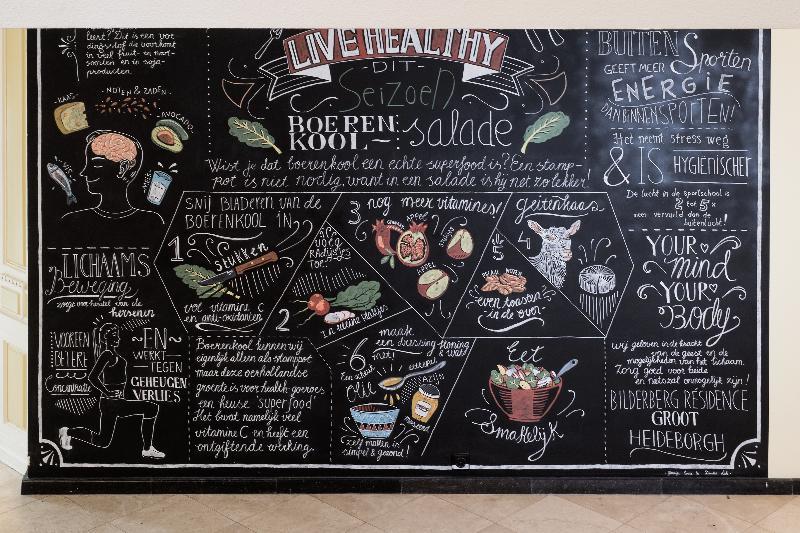 leert? Dit is een voe
dingsstof die voorkomt
in veel fruit- en noot-
soorten en in soja-
producten.
KAAS
NOTEN & ZADEN
AVOCADO
VIS
WATER
LICHAAMS
beweging
zorgt voor herstel van de
hersenen
VOOR EEN
BETERE
Concentratie
~EN~
WERKT
TEGEN
GEHEUGEN
VERLIES
LIVE HEALTHY
-DIT-
Seizoen
BOEREN
KOOL~
salade
Wist je dat boerenkool een echte superfood is? Een stamp-
pot is niet nodig, want in een salade is hij net zo lekker!
1
SNIJ BLADEREN VAN DE
BOERENKOOL IN
stukken
vol vitamine C
en anti-oxidanten
2
VOEG
RADIJSJES
TOE
in kleine stukjes
3 nog meer vitamines!
APPEL
APPEL
4
geitenkaas
5
PECAN
NOTEN
even roosten
in de oven
Boerenkool kennen wij
eigenlijk alleen als stamppot
maar deze oerhollandse
groente is voor health-goeroes
een heuse 'superfood'
Het bevat namelijk veel
vitamine C en heeft een
ontgiftende werking.
6 maak
een dressing
met:
Een scheut
Olie
eetlepel
AZIJN
honing
& water
mosterd
Goed mixen is
simpel & gezond!
Eet
Smakelijk
BUITEN Sporten
GEEFT MEER
ENERGIE
DAN BINNENSPORTEN!
Het neemt stress weg
& IS HYGIËNISCHER
De lucht in de sportschool is
2 tot 5x
meer vervuild dan de
buitenlucht!
YOUR
mind
YOUR
Body
Wij geloven in de kracht
van de geest en de
mogelijkheden van het lichaam.
Zorg goed voor beide
en niets zal onmogelijk zijn!
BILDERBERG RÉSIDENCE
GROOT
HEIDEBORGH